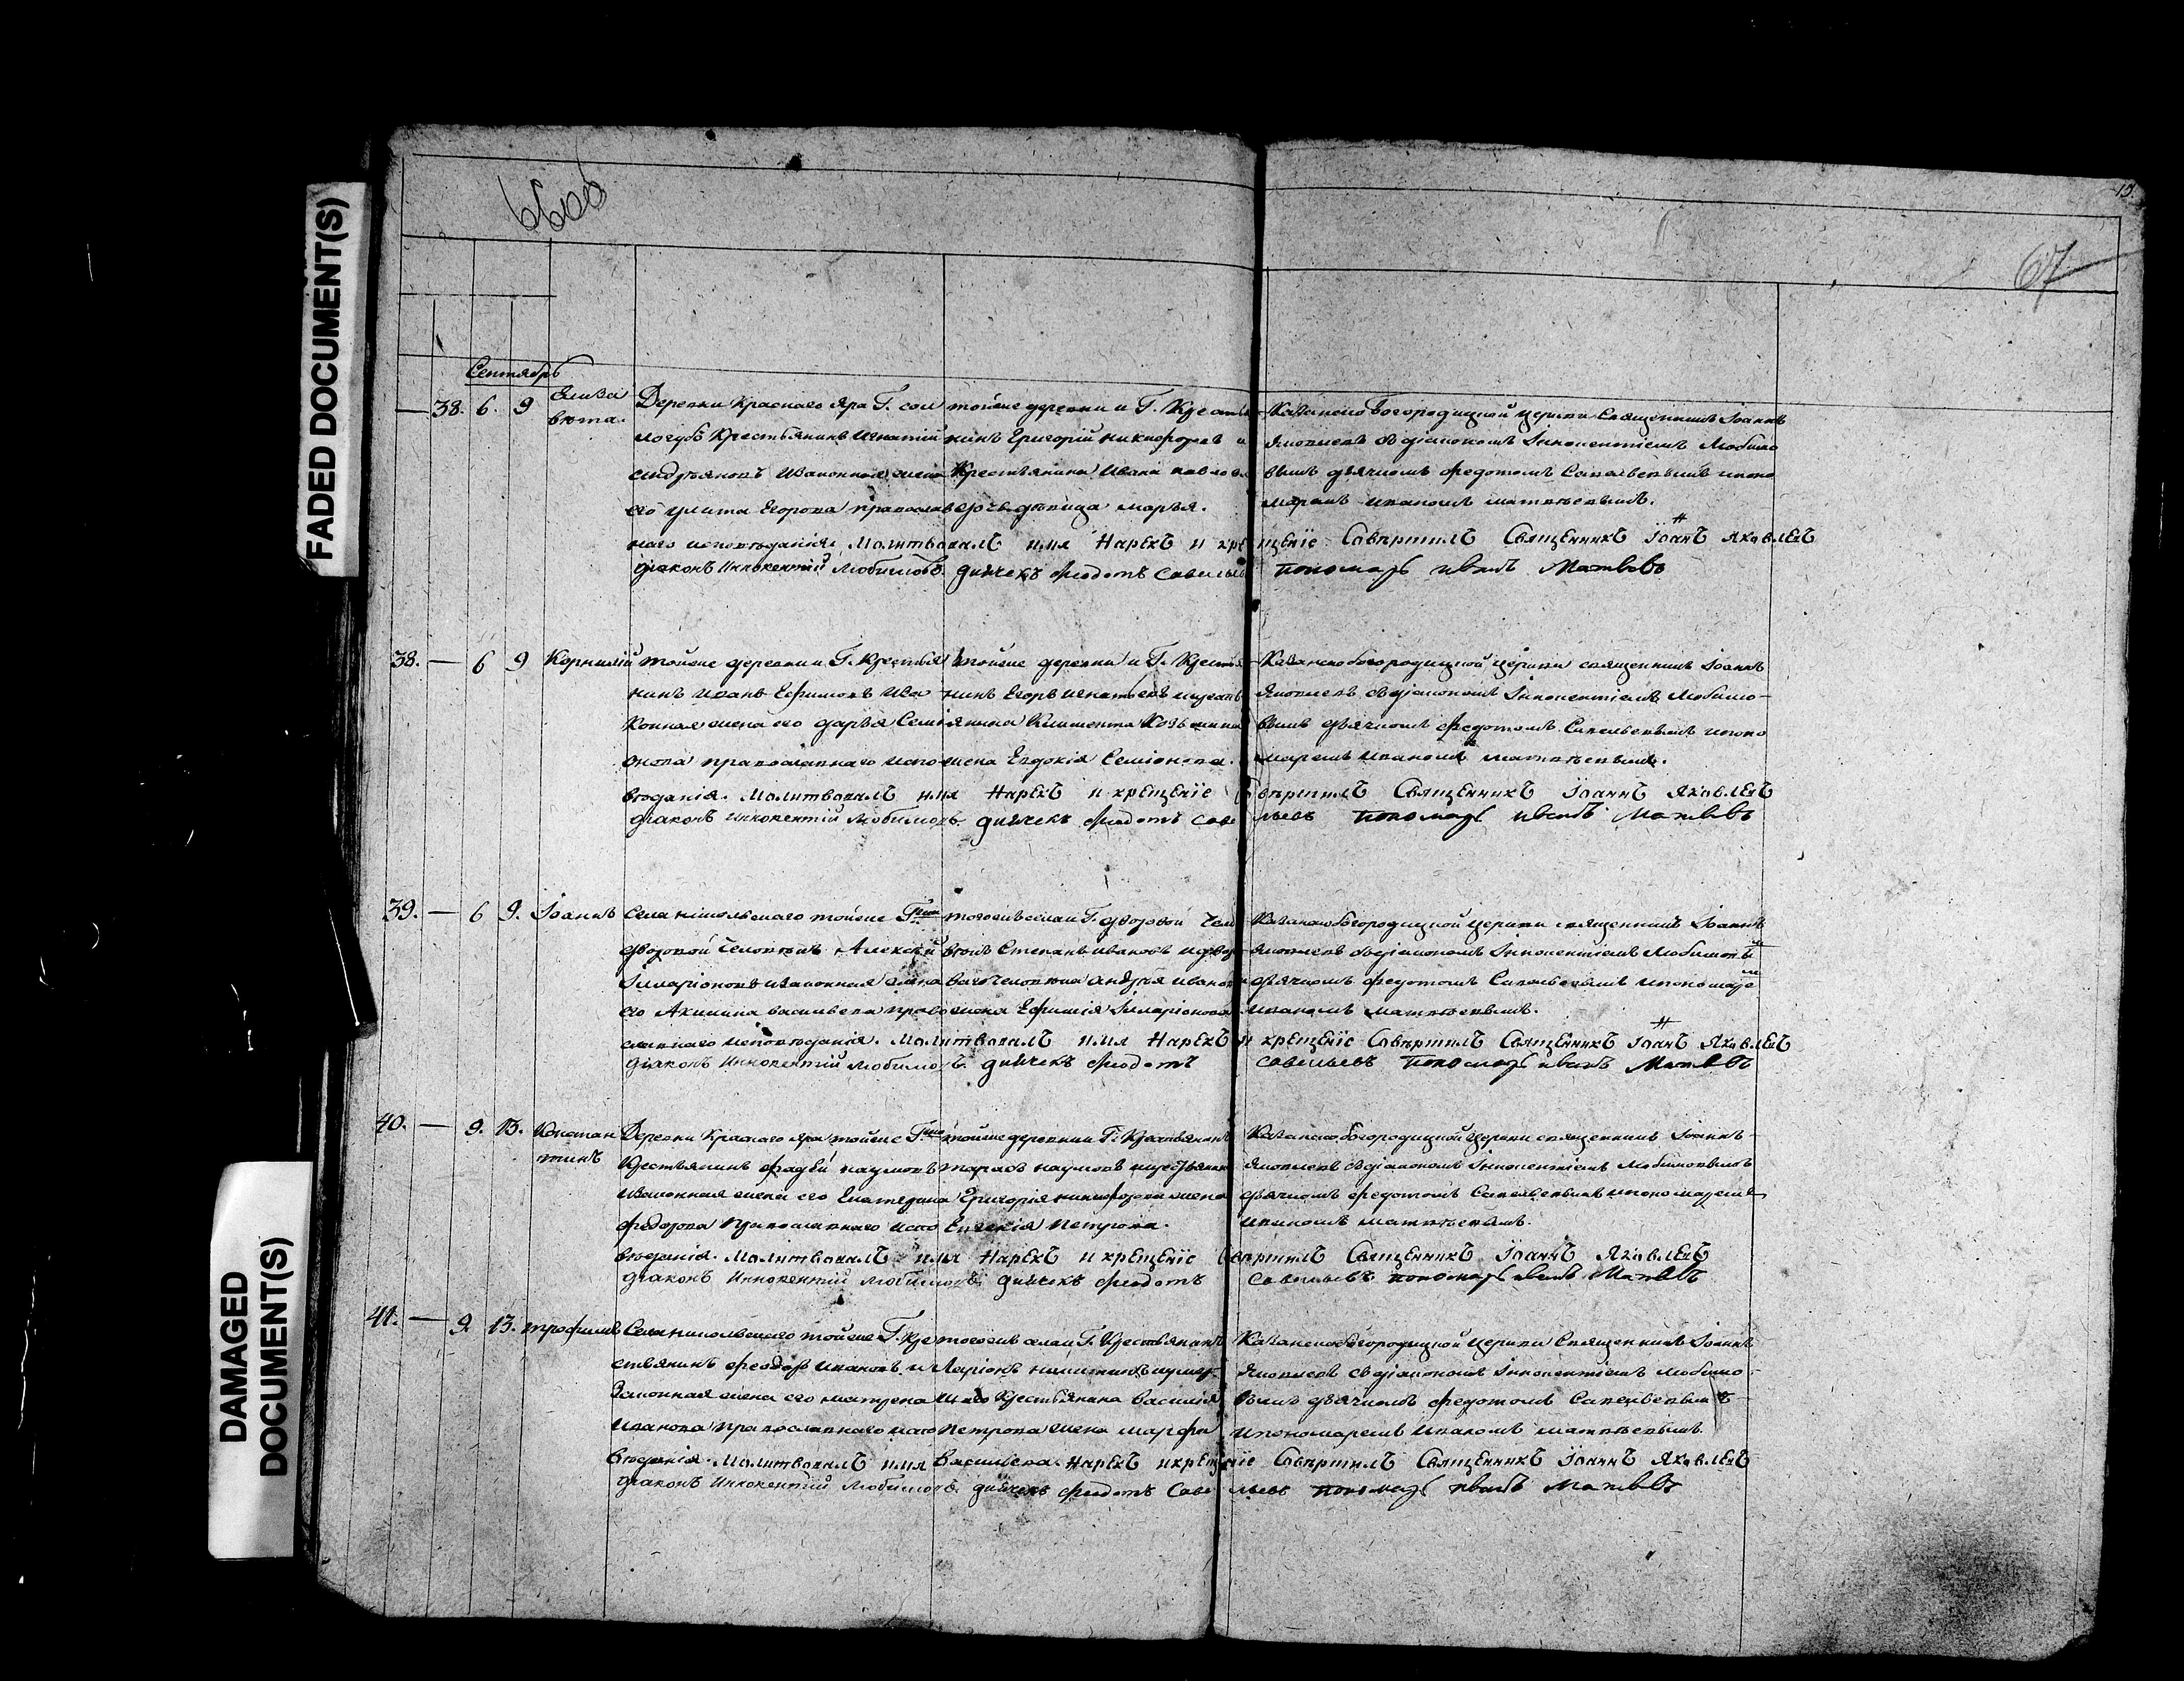 FADED DOCUMENT(S)
DAMAGED DOCUMENT(S)
67
Сентябрь
38. 6. 9 Елиза
вета.
Деревни Краснаго Яра Г. сол
могубъ Крестьянинъ Игнатій
законная жена
его Улита Егорова православ
наго исповѣданія.
тойже деревни и Г. Кресть
нинъ Григорій Никифоровъ и
Крестьянина Ивана Павлова
дочь дѣвица Марья.
Казанско Богородицкой церкви Священникъ Іоаннъ
Яковлевъ съ діакономъ Іннокентіемъ Любимо
вымъ дьячкомъ Федотомъ Савельевымъ и поно
маремъ Иваномъ Матвѣевымъ.
Молитвовалъ имя Нарекъ и крещеніе Совершилъ Священникъ Іоанъ Яковлевъ
діаконъ Иннокентій Любимовъ. дьячекъ Федотъ Савельевъ пономарь иванъ Матвевъ
38. 6 9 Корнилій
тойже деревни и Г. Крестья
нинъ Иванъ Ефимовъ и за
конная жена его Дарья Семі
онова православнаго испо
вѣданія.
тойже деревни и Г. Крестья
нинъ Егоръ Игнатьевъ и крестья
янина Климента Козьмина
жена Евдокія Семіонова.
Казанскобогородицкой церкви священникъ Іоаннъ
Яковлевъ съ діакономъ Іннокентіемъ Любимо-
вымъ дьячкомъ Федотомъ Савельевымъ и поно
маремъ Иваномъ Матвѣевымъ.
Молитвовалъ имя Нарекъ и крещеніе Совершилъ Священникъ Іоаннъ Яковлевъ
діаконъ Иннокентій Любимовъ. дьячекъ Федотъ Савельевъ пономарь иванъ Матвевъ
39. 6 9. Іоаннъ
Села Никольскаго тойже Гжи
дворовой человекъ Алексѣй
Іларіоновъ и законная жена
его Акилина Васильева право
славнаго исповѣданія.
тогожъ села и Г. дворовой чело
вѣкъ Степанъ Ивановъ и дворо
ваго человѣка Андрея Иванова
жена Ефимія Іларіонова
Казанскобогородицкой церкви священникъ Іоаннъ
Яковлевъ съ діакономъ Іннокентіемъ Любимовы
дьячкомъ Федотомъ Савельевымъ и пономаре
Иваномъ Матвѣевымъ.
Молитвовалъ имя Нарекъ и крещеніе Совершилъ Священникъ Іоанъ Яковлевъ
діаконъ Иннокентій Любимовъ. дьячекъ Федотъ Савельевъ пономарь иванъ Матвевъ
40. 9. 13. Констан
тинъ
Деревни Краснаго Яра тойже Гжи
Крестьянинъ Фадѣй Наумовъ
и законная жена его Екатерина
Федорова православнаго испо
вѣданія.
тойже деревни и Г. Крестьянинъ
Тарасъ Наумовъ и крестьянина
Григорія Никифорова жена
Евгенія Петрова.
Казанскобогородицкой церкви священникъ Іоаннъ
Яковлевъ съ діакономъ Іннокентіемъ Любимовымъ
дьячкомъ Федотомъ Савельевымъ и пономаремъ
Иваномъ Матвѣевымъ.
Молитвовалъ имя Нарекъ и крещеніе Совершилъ Священникъ Іоаннъ Яковлевъ
діаконъ Иннокентій Любимовъ. дьячекъ Федотъ Савельевъ пономарь иванъ Матвевъ
41. 9 13. Трофимъ
Села Никольскаго тойже Г. кре
стьянинъ Феодоръ Ивановъ и
законная жена его Матрена
Иванова православнаго испо
вѣданія.
тогожъ села и Г. Крестьянинъ
Ларіонъ Никитинъ и умер
шаго Крестьянина Василія
Петрова жена Марфа
Васильева.
Казанскобогородицкой церкви Священникъ Іоаннъ
Яковлевъ съ діакономъ Іннокентіемъ Любимо-
вымъ дьячкомъ Федотомъ Савельевымъ
и пономаремъ Иваномъ Матвѣевымъ.
Молитвовалъ имя Нарекъ и крещеніе Совершилъ Священникъ Іоаннъ Яковлевъ
діаконъ Иннокентій Любимовъ. дьячекъ Федотъ Савельевъ пономарь иванъ Матвевъ